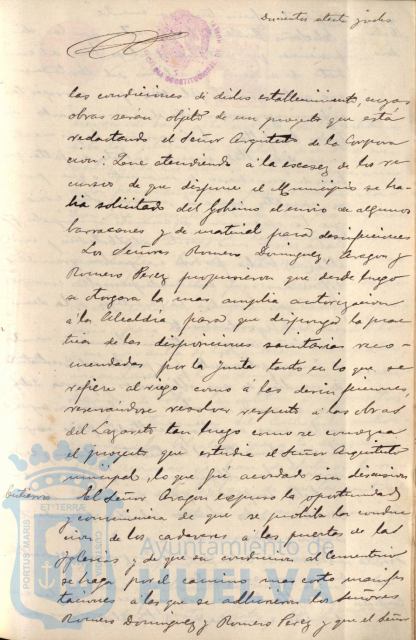 Doscientos siete
las condiciones de dicho establecimiento, cuyas
obras serán objeto de un proyecto que está
redactando el Señor Arquitecto de la Corpora
cion: Que atendiendo á la escasez de los re
cursos de que dispone el Municipio se ha
bia solicitado del Gobierno el envio de algunos
barracones y de material para desinfecciones
Los Señores Romero Dominguez, Aragon y
Romero Perez propusieron que desde luego
se otorgara la mas amplia autorizacion
á la Alcaldía para que disponga la prac
tica de las disposiciones sanitarias reco
mendadas por la Junta tanto en lo que se
refiere al riego como á las desinfecciones,
reservándose resolver respecto á las obras
del Lazareto tan luego como se conozca
el proyecto que estudia el Señor Arquitecto
municipal, lo que fué acordado sin discusion
El Señor Aragon expuso la oportunidad
y conveniencia de que se prohiba la conduc
cion de los cadaveres á las puertas de las
Iglesias y de que su conduccion al Cementerio
se haga por el camino mas corto manifes
taciones á las que se adhirieron los Señores
Romero Dominguez y Romero Perez y que el Señor
PORTUS MARIS
ET TERRÆ
CUSTODIA
Ayuntamiento de
HUELVA